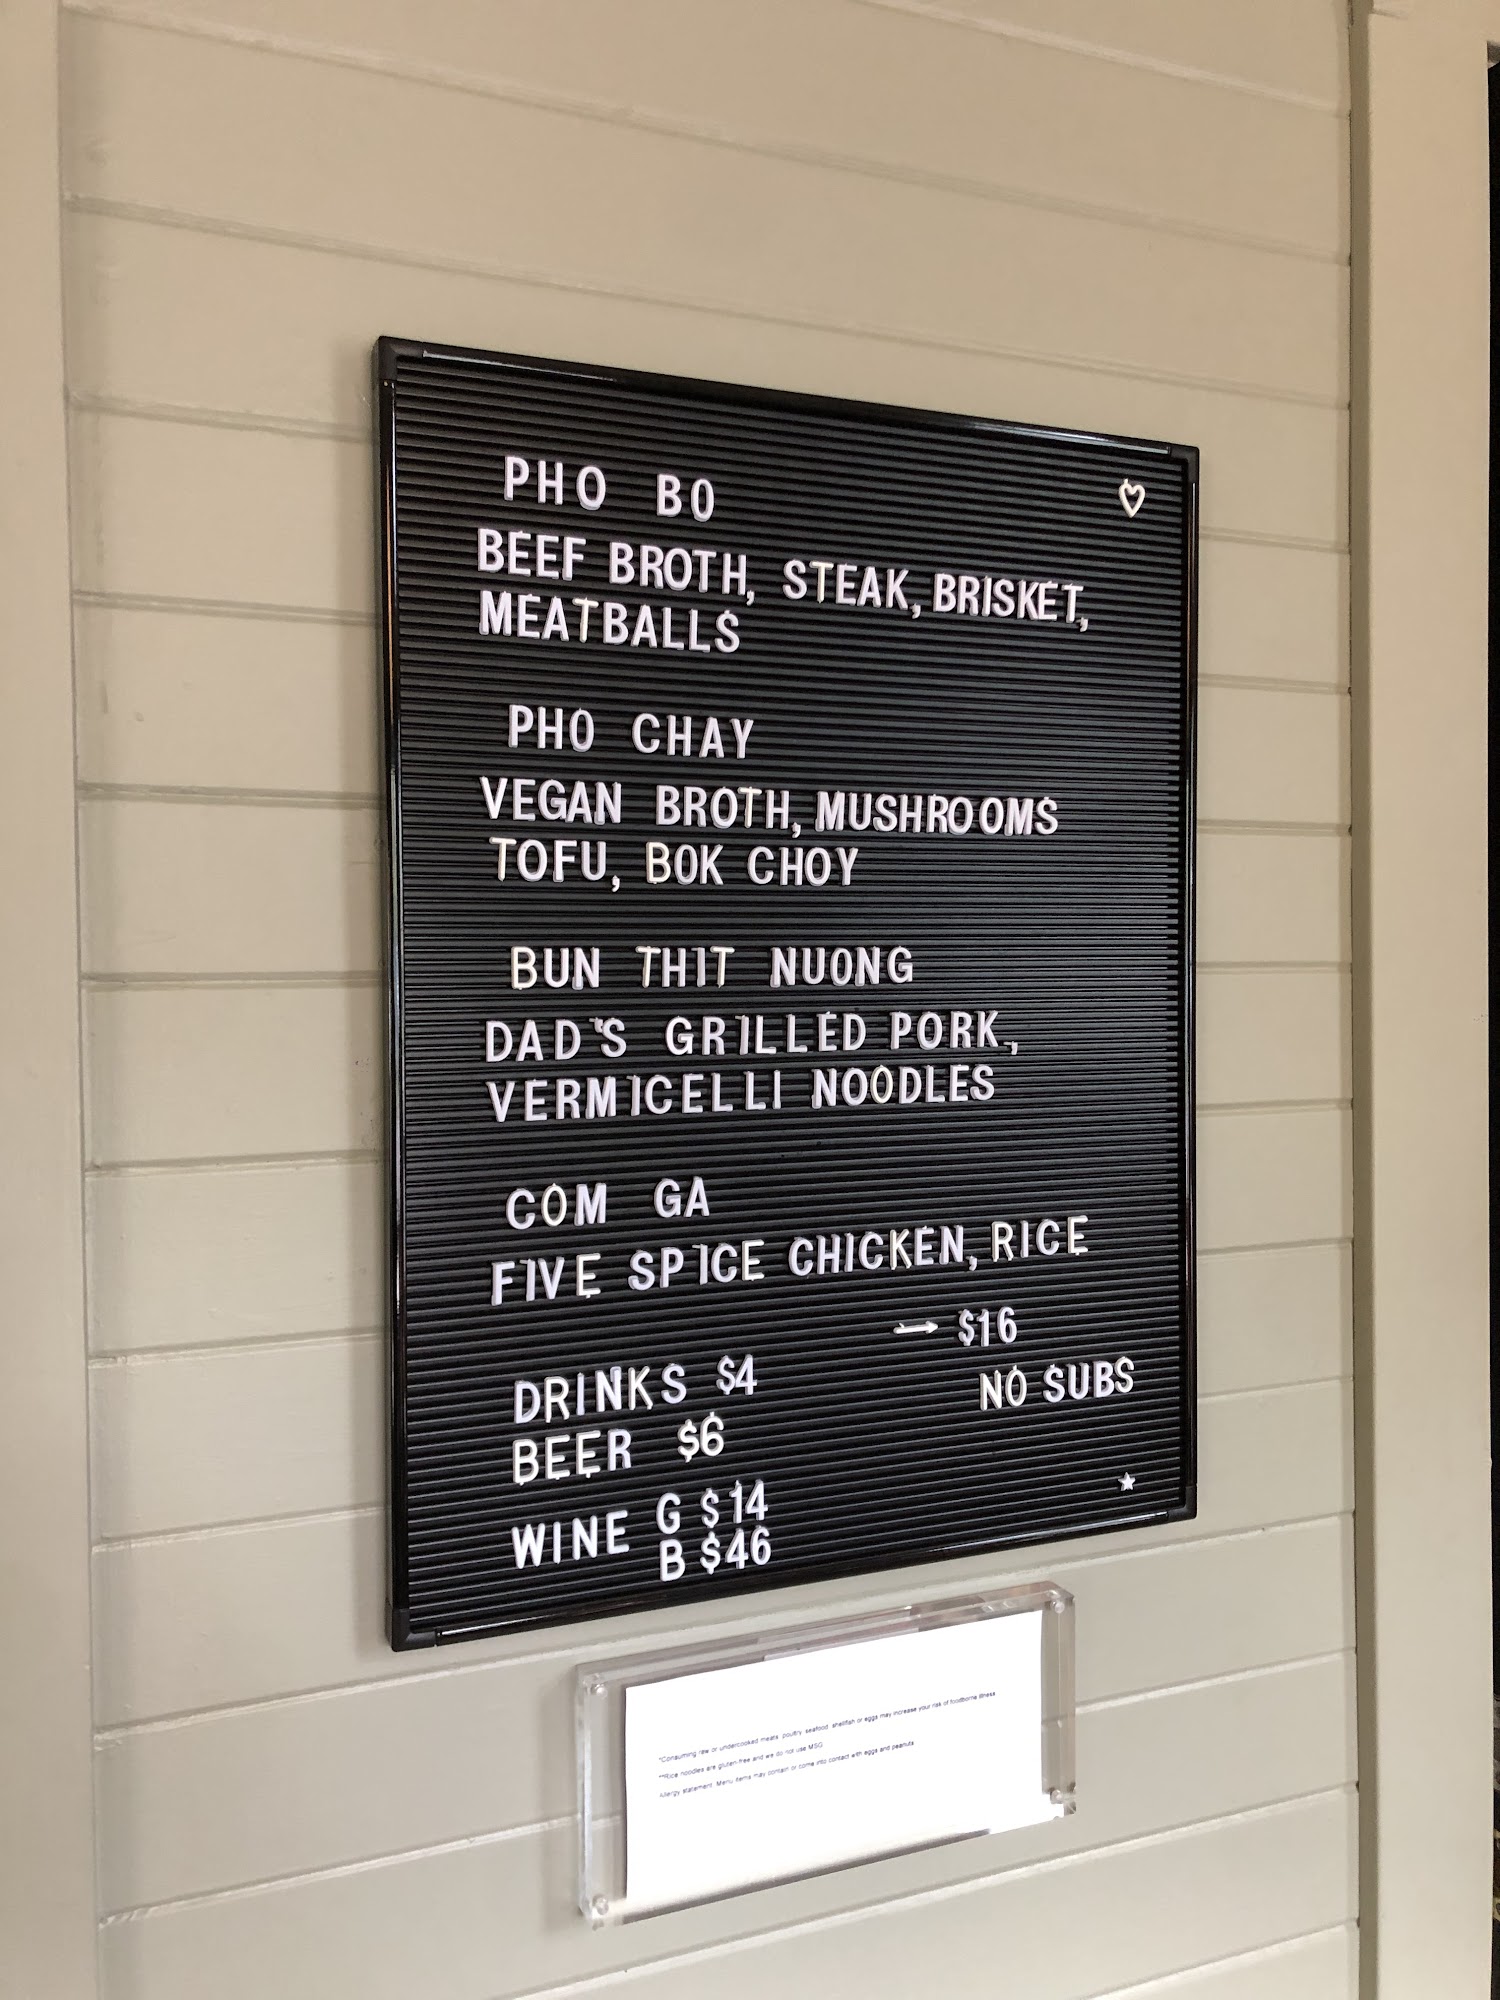 PHO BO
BEEF BROTH, STEAK, BRISKET,
MEATBALLS
PHO CHAY
VEGAN BROTH, MUSHROOMS
TOFU, BOK CHOY
BUN THIT NUONG
DAD'S GRILLED PORK,
VERMICELLI NOODLES
COM GA
FIVE SPICE CHICKEN, RICE
→ $16
NO SUBS
DRINKS $4
BEER $6
WINE G $14
B $46
*Consuming raw or undercooked meats, poultry, seafood, shellfish or eggs may increase your risk of foodborne illness
**Rice noodles are gluten-free and we do not use MSG
Allergy statement: Menu items may contain or come into contact with eggs and peanuts